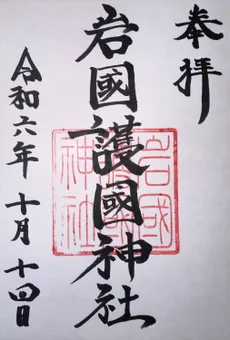 奉拝
岩國護國神社
令和六年 十月 十四日
岩國
護國
神社